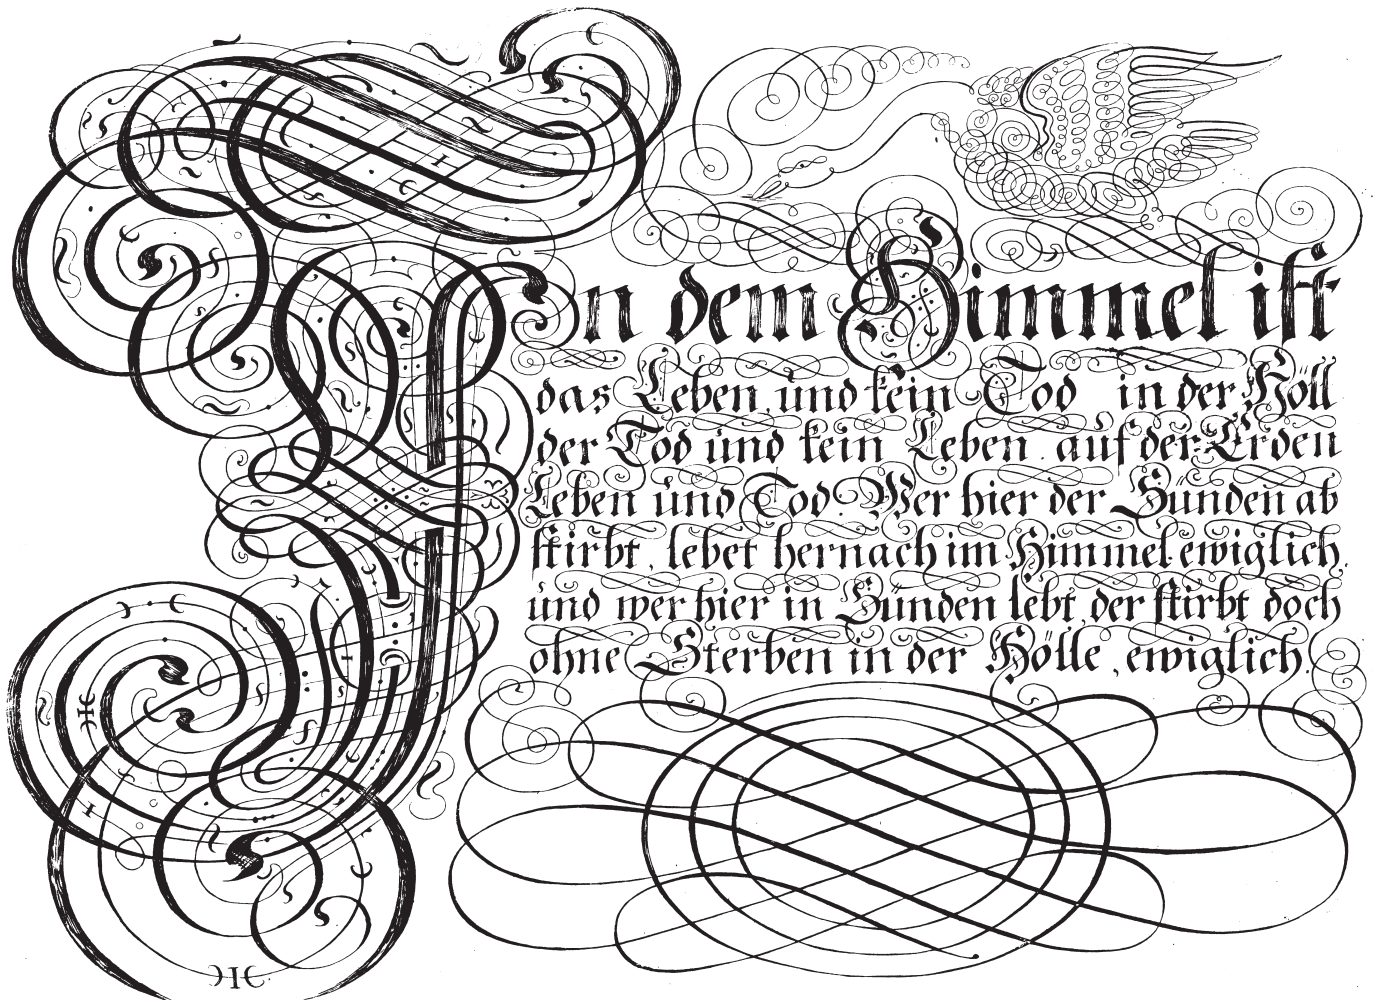 In dem Himmel ist
das Leben und kein Tod in der Höll
der Tod und kein Leben. auf der Erden
Leben und Tod. Wer hier der Sünden ab
stirbt, lebet hernach im Himmel ewiglich,
und wer hier in Sünden lebt, der stirbt doch
ohne Sterben in der Hölle, ewiglich.